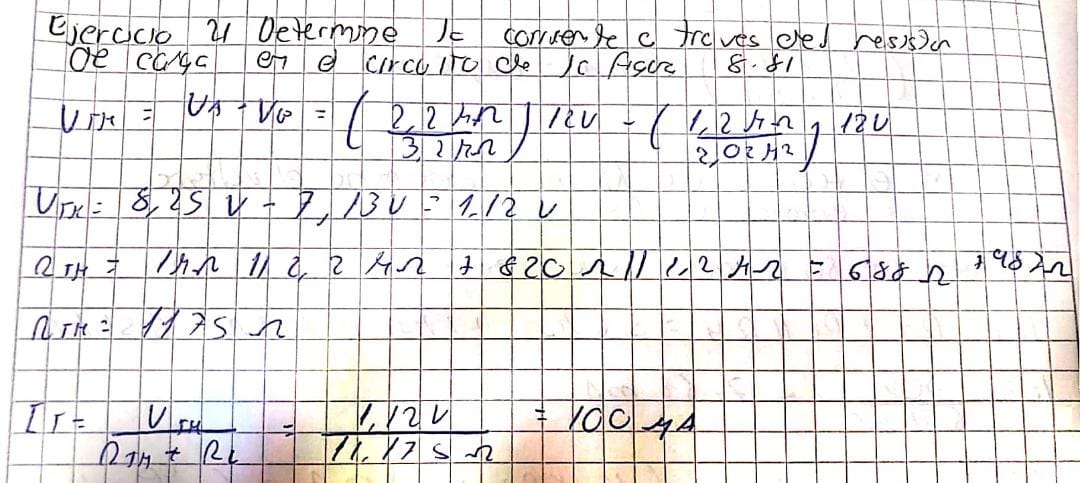 Ejercicio 21 Determine la corriente a traves del resistor
De carga en el circuito de la figura 8.81
VTH = VA - VB = ( 2,2 kΩ / 3,2 kΩ ) 12V - ( 1,2 kΩ / 2,02 kΩ ) 12V
VTH = 8,25 V - 7,13V = 1.12 V
RTH = 1kΩ || 2,2 kΩ + 820 Ω || 1,2 kΩ = 688 Ω + 487Ω
RTH = 1175 Ω
IT = VTH / RTH + RL = 1,12V / 11,175 Ω = 100 µA